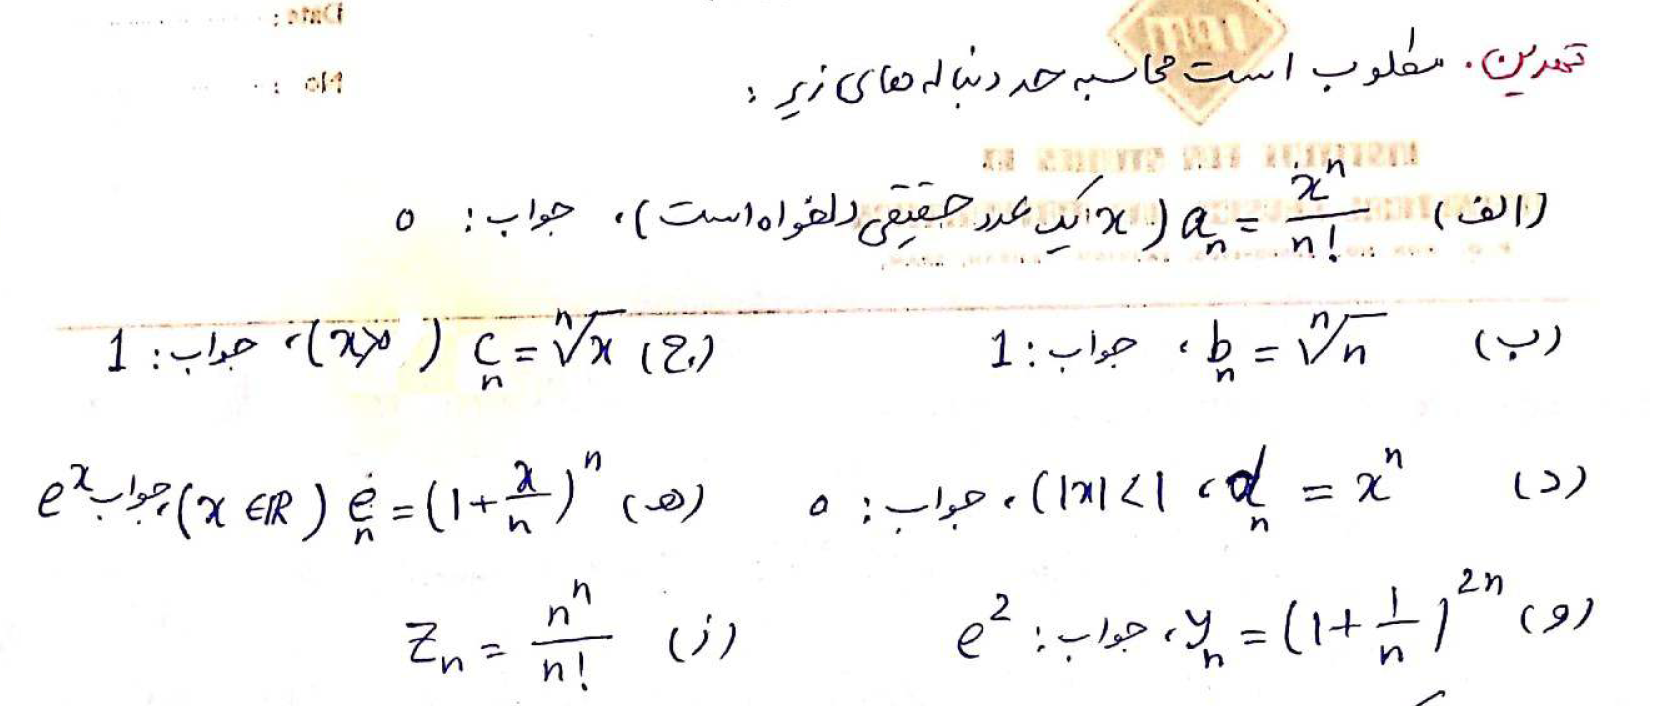 تمرین. مطلوب است محاسبه حد دنباله های زیر:
(الف) a_n = x^n / n! (x یک عدد حقیقی دلخواه است)، جواب: 0
(ب) b_n = ⁿ√n ، جواب: 1 (ج) c_n = ⁿ√x (x>0)، جواب: 1
(د) d_n = x^n ، (|x|<1)، جواب: 0 (هـ) e_n = (1 + x/n)^n (x ∈ ℝ)، جواب e^x
(و) y_n = (1 + 1/n)^{2n} ، جواب: e^2 (ز) z_n = n^n / n!